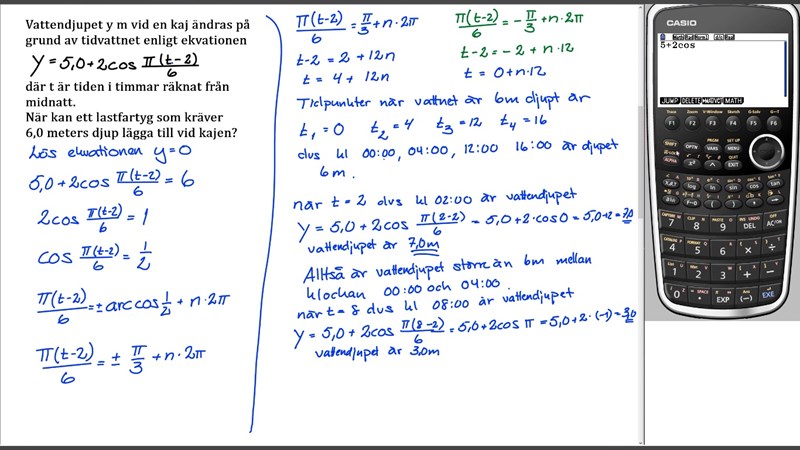 Vattendjupet y m vid en kaj ändras på
grund av tidvattnet enligt ekvationen
y = 5,0 + 2cos π(t-2)/6
där t är tiden i timmar räknat från
midnatt.
När kan ett lastfartyg som kräver
6,0 meters djup lägga till vid kajen?
Lös ekvationen y=0
5,0+2cos π(t-2)/6 = 6
2cos π(t-2)/6 = 1
cos π(t-2)/6 = 1/2
π(t-2)/6 = ± arccos 1/2 + n·2π
π(t-2)/6 = ± π/3 + n·2π
π(t-2)/6 = π/3 + n·2π
t-2 = 2 + 12n
t = 4 + 12n
π(t-2)/6 = -π/3 + n·2π
t-2 = -2 + n·12
t = 0+n·12
Tidpunkter när vattnet är 6m djupt är
t₁=0 t₂=4 t₃=12 t₄=16
dvs kl 00:00, 04:00, 12:00 16:00 är djupet
6m.
när t=2 dvs kl 02:00 är vattendjupet
y = 5,0 + 2cos π(2-2)/6 = 5,0+2·cos0 = 5,0+2 = 7,0
vattendjupet är 7,0m
Alltså är vattendjupet större än 6m mellan
klockan 00:00 och 04:00.
när t=8 dvs kl 08:00 är vattendjupet
y = 5,0 + 2cos π(8-2)/6 = 5,0+2cos π = 5,0+2·(-1) = 3,0
vattendjupet är 3,0m
CASIO
5+2cos
JUMP DELETE MATH
F1 F2 F3 F4 F5 F6
SHIFT OPTN VARS MENU
ALPHA EXIT
X,θ,T log ln sin cos tan
7 8 9 DEL AC/ON
4 5 6 × ÷
1 2 3 + −
0 . EXP (−) EXE